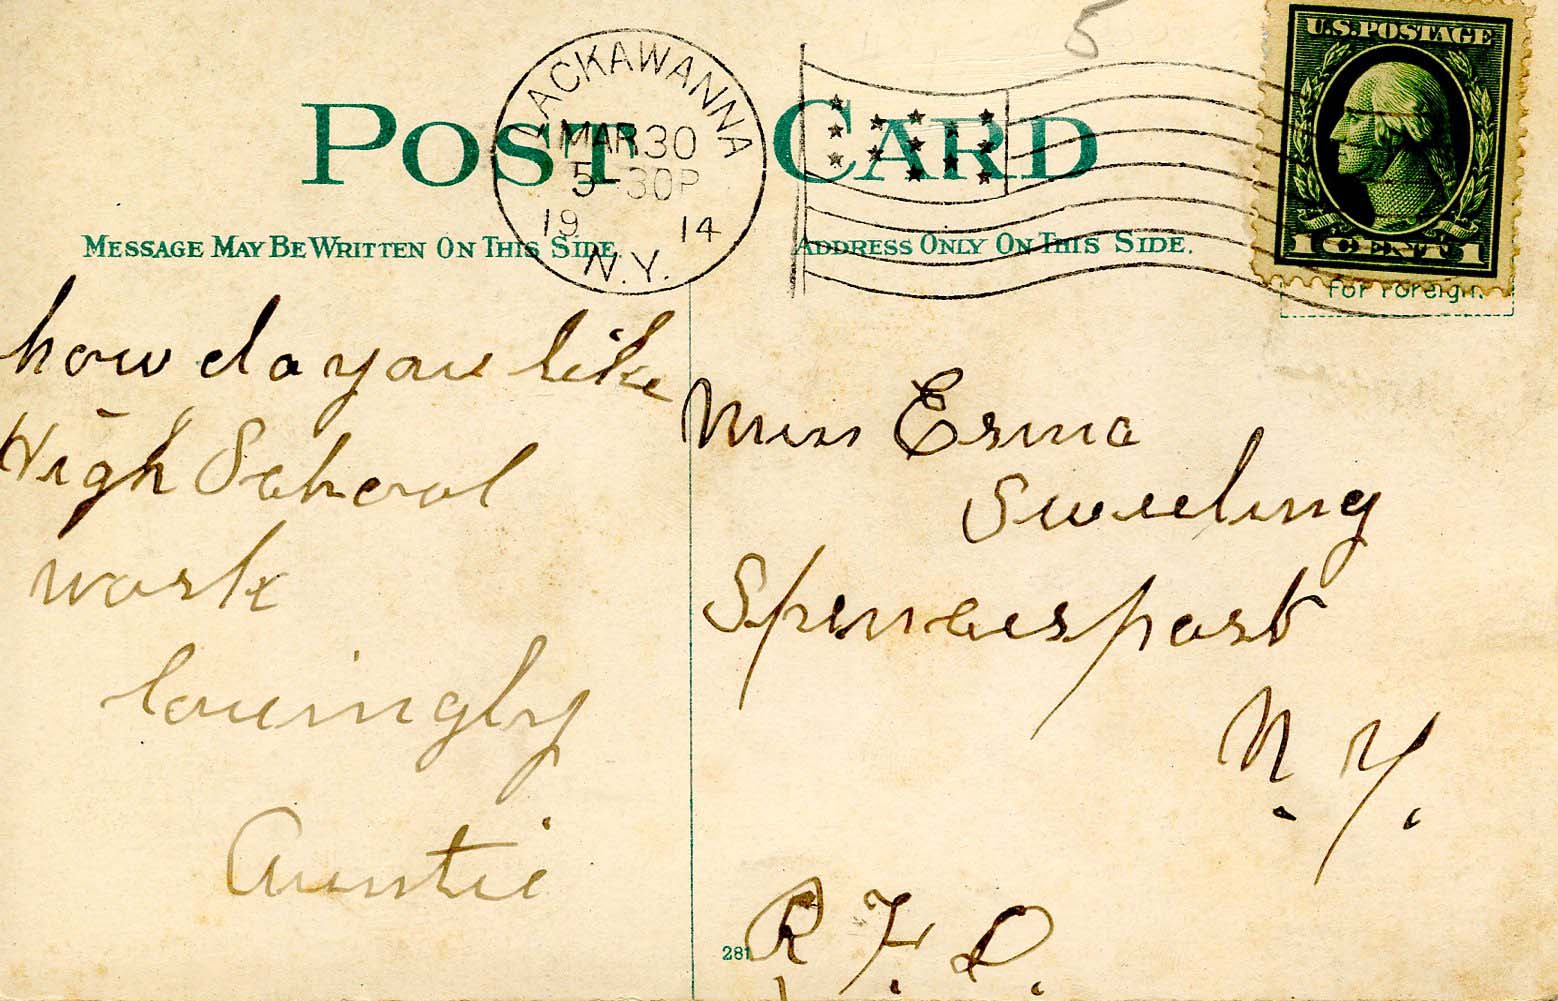 5
U.S. POSTAGE
1 CENT 1
POST CARD
LACKAWANNA
MAR 30
5-30P
19 14
N.Y.
MESSAGE MAY BE WRITTEN ON THIS SIDE.
ADDRESS ONLY ON THIS SIDE.
for Foreign.
how do you like
High School
work
lovingly
Auntie
Miss Erma
Sweeting
Spencerport
N. Y.
R. F. D.
281